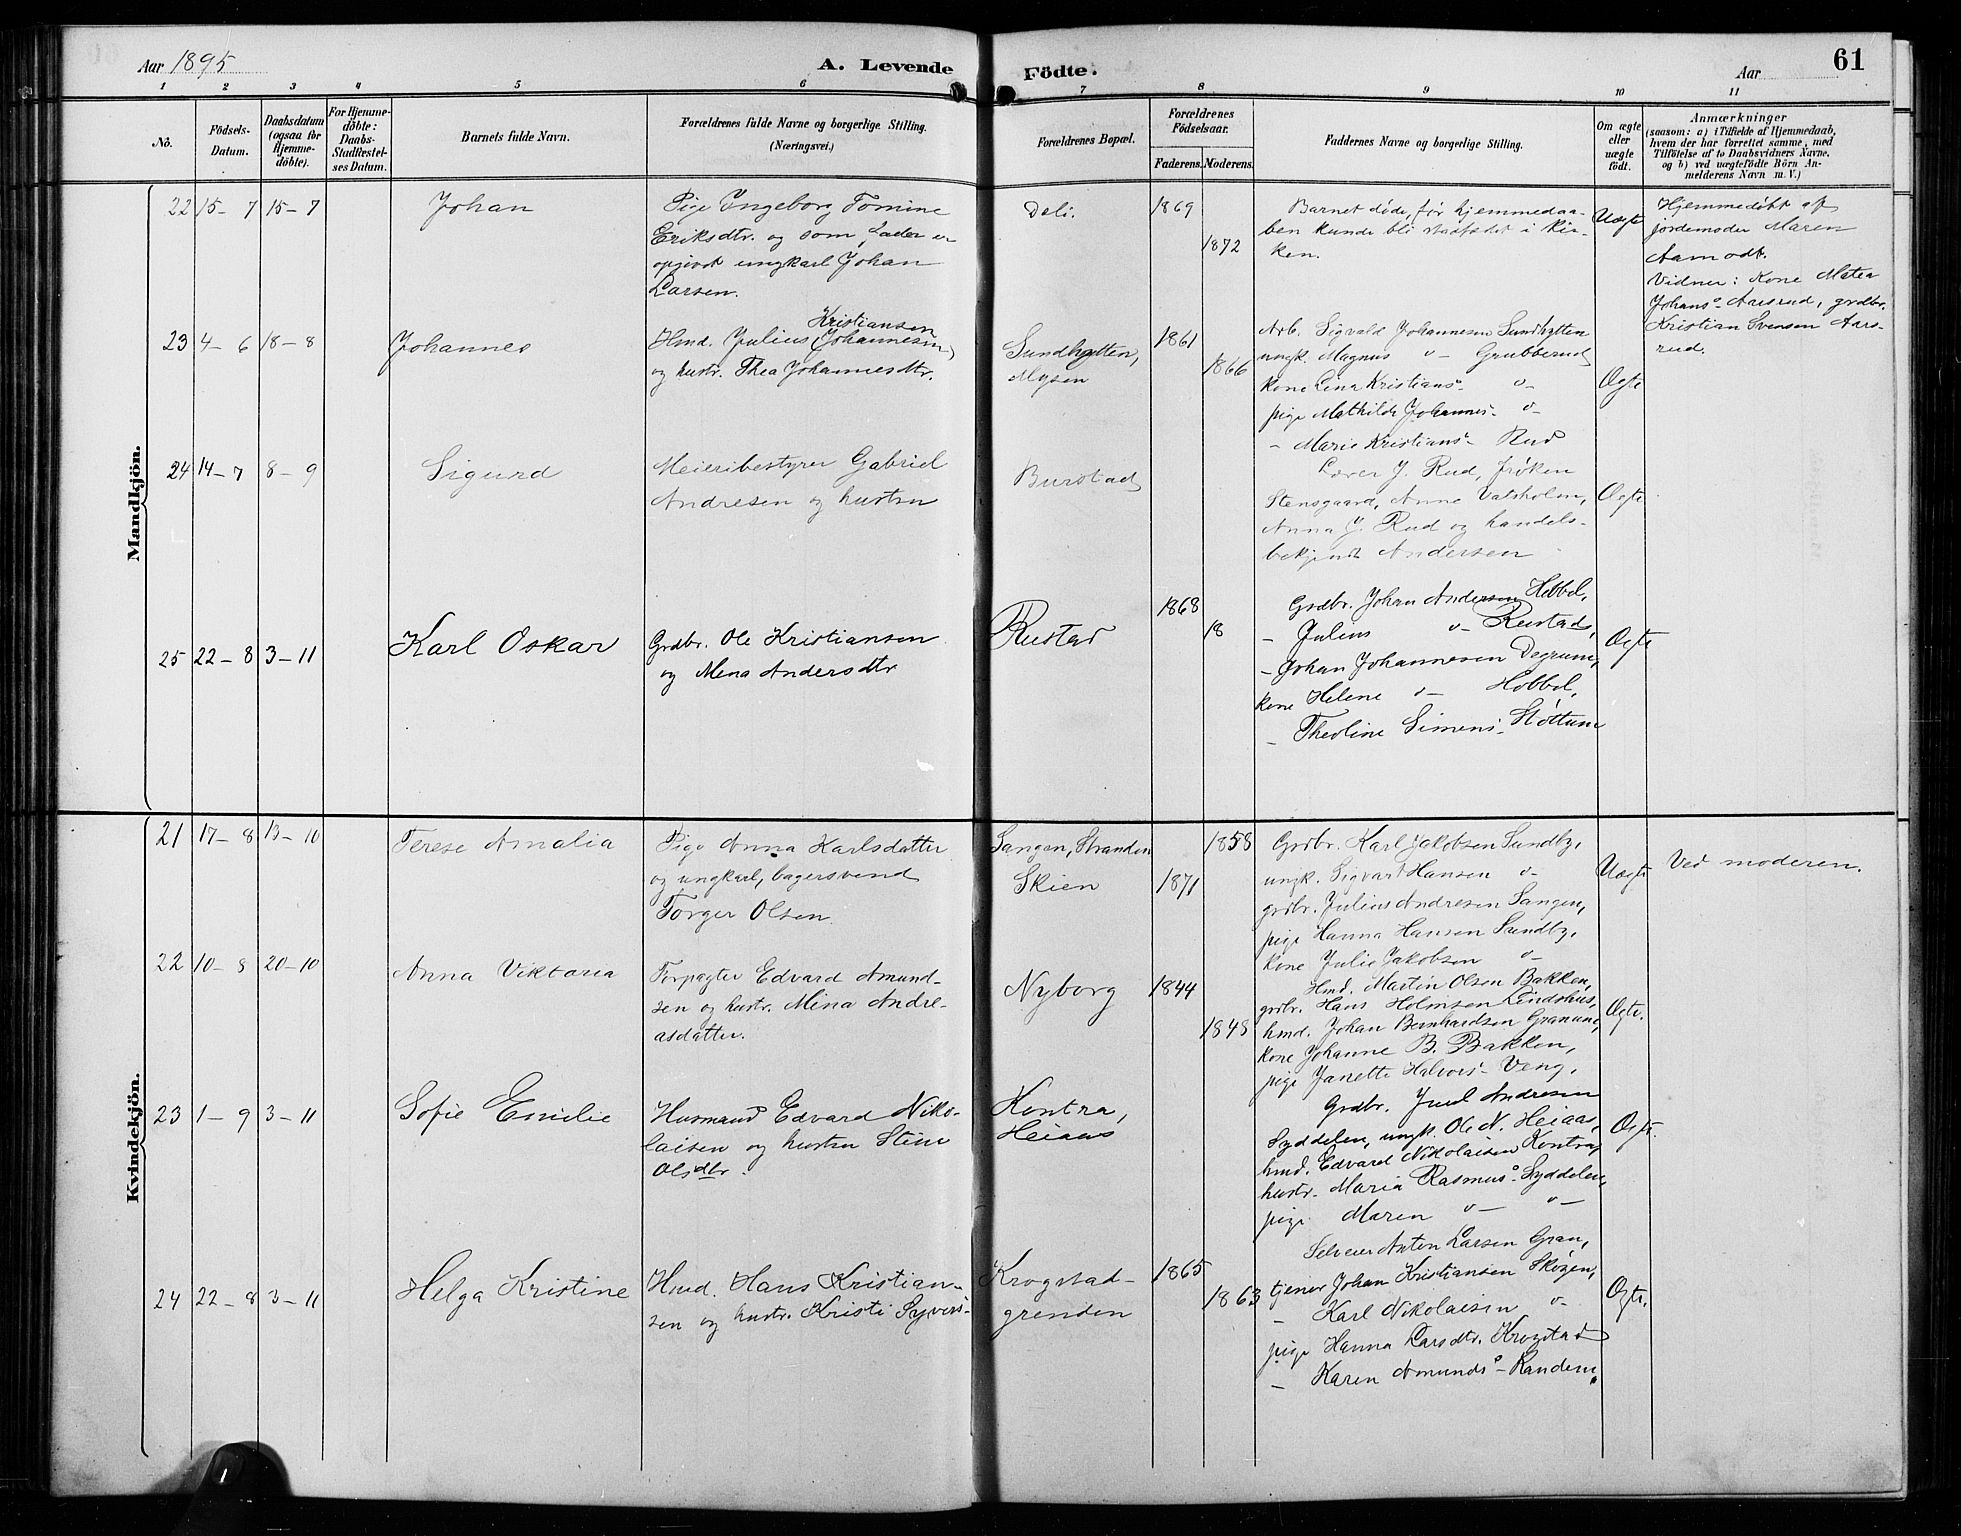 Aar 1895
A. Levende Födte.
Aar
61
1 2 3 4 5 6 7 8 9 10 11
No.
Födsels-Datum.
Daabsdatum (ogsaa for Hjemmedöbte).
For Hjemmedöbte: Daabs-Stadfæstelses Datum.
Barnets fulde Navn.
Forældrenes fulde Navne og borgerlige Stilling. (Næringsvei.)
Forældrenes Bopæl.
Forældrenes Födselsaar.
Faderens. Moderens.
Faddernes Navne og borgerlige Stilling.
Om ægte eller uægte födt.
Anmærkninger
(saasom: a) i Tilfælde af Hjemmedaab, hvem der har forrettet samme, med Tilföielse af to Daabsvidners Navne, og b) ved uægtefödte Börn Anmelderens Navn m. V.)
Mandkjön.
22 15-7 15-7 Johan
Pige Ingeborg Tomine
Eriksdtr. og som fader er
opgivet ungkarl Johan
Larsen.
Deli.
1869
1872
Barnet døde, før hjemmedaa-
ben kunde bli stadfæstet i kir-
ken.
Uægte
Hjemmedøbt af
jordemoder Maren
Aamodt.
Vidner: Kone Matea
Johans°- Aarsrud, grdbr.
Kristian Svensen Aars-
rud.
23 4-6 18-8 Johannes
Kristiansen
Hmd. Julius (Johannesen)
og hustr. Thea Johannesdtr.
Sundhytten,
Mysen
1861
1866
Arb. Sigvald Johannesen Sundhytten
ungk. Magnus v- Grubberud
kone Lina Kristians°- v-
pige Mathilde Johannes- v-
- Marie Kristians- Rud
Ægte
24 14-7 8-9 Sigurd
Meieribestyrer Gabriel
Andresen og hustru
Burstad
Lærer J. Rud, frøken
Stensgaard, Anne Valsholm,
Anna J. Rud og handels-
bekjendt Andersen
Ægte
25 22-8 3-11 Karl Oskar
Grdbr. Ole Kristiansen
og Mena Andersdtr
Rustad
1868
18
Grdbr. Johan Andersen Hobbel,
- Julius v- Rustad,
- Johan Johannesen Degrum,
kone Helene v- Hobbel,
- Theoline Simens- Støttum
Ægte
Kvindekjön.
21 17-8 13-10 Terese Amalia
Pige Anna Karlsdatter
og ungkarl, bagersvend
Torger Olsen.
Sangen, Stranden
Skien
1858
1871
Grdbr. Karl Jakobsen Sundby,
ungk. Sigvart Hansen v-
grdbr. Julius Andresen Sangen,
pige Hanna Hansen Sundby,
kone Julie Jakobsen v-
Uægte
Ved moderen.
22 10-8 20-10 Anna Viktoria
Forpagter Edvard Amund-
sen og hustr. Mina Andre-
asdatter.
Nyborg
1844
1848
Hmd. Martin Olsen Bakken,
grdbr. Hans Holmsen Lindshus,
hmd. Johan Bernhardsen Granum,
kone Johanne B. Bakken,
pige Janette Halvors- Veng,
Ægte.
23 1-9 3-11 Sofie Emilie
Husmand Edvard Niko-
laisen og hustru Stine
Olsdtr.
Kontra,
Heiaas
Grdbr. Juul Andresen
Syddelen, ungk. Ole N. Heiaas,
hmd. Edvard Nikolaisen Kontra,
hustr. Maria Rasmus°- Syddelen,
pige Maren v- v-
Ægte.
24 22-8 3-11 Helga Kristine
Hmd. Hans Kristian-
sen og hustr. Kristi Syvers-
Krogstad-
grenden
1865
1863
Selveier Anton Larsen Gran,
tjener Johan Kristiansen Skogen,
- Karl Nikolaisen v-
pige Hanna Larsdtr. Krogstad
- Karen Amunds°- Randem,
Ægte.